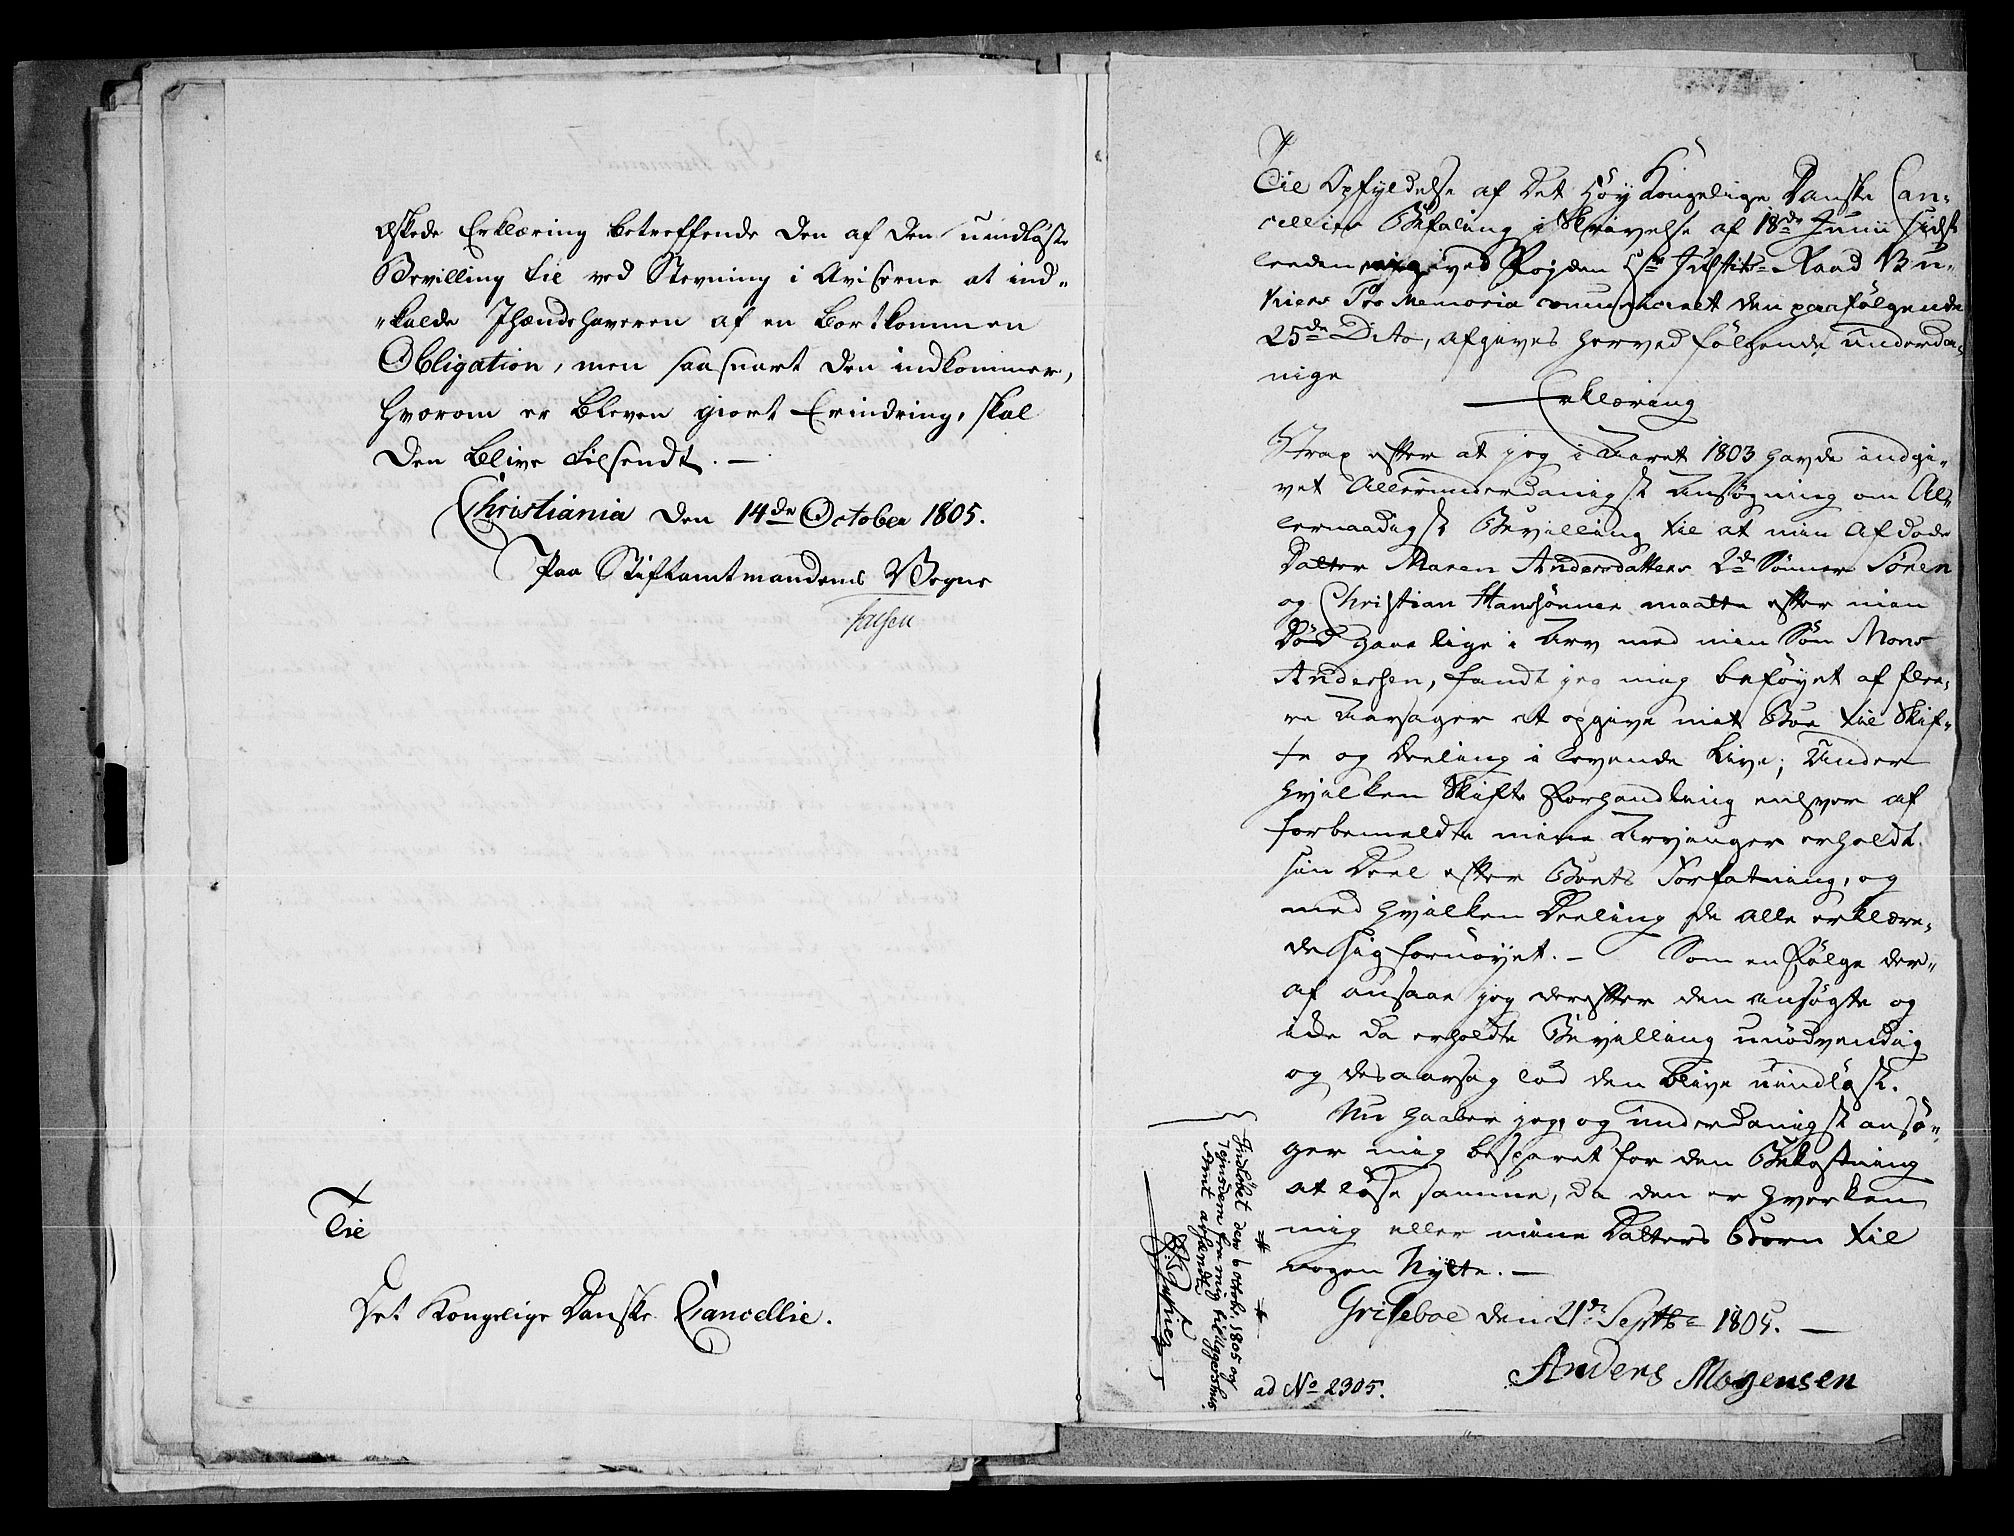 elskede Erklæring betreffende den af den uindløste
Bevilling til ved Stevning i Aviserne at ind-
kalde Ihændehaveren af en bortkommen
Obligation, men saasnart den indkommer,
hvorom er bleven giort Erindring, skal
den blive tilsendt. —
Christiania den 14de October 1805.
Paa Stiftamtmandens Vegne
Falsen
Til
Det Kongelige Danske Cancellie.
Til Opfyldelse af det høy Kongelige Danske Can-
cellies Befaling i Skrivelse af 18de Junii sidst-
leeden ved Fogden Hr Justits-Raad
Pro Memoria communiceret den paafølgende
25de Dito, afgives herved følgende underda-
nige
Erklæring
Strax efter at jeg i Aaret 1803 havde indgi-
vet Allerunderdanigst Ansøgning om Al-
lernaadigst Bevilling til at min afdøde
Datter Maren Andersdatters 2de Sønner Søren
og Christian Hanssønner maatte efter min
Død gaae lige i Arv med min Søn Mons
Andersen, fandt jeg mig beføyet af flee-
re Aarsager at opgive mit Boe til Skif-
te og Deeling i levende Live; Under
hvilken Skifte Forhandling enhver af
forbemeldte mine Arvinger erholdt
sin Deel efter Boets Forfatning, og
med hvilken Deeling de alle erklære-
de sig fornøyet. — Som en Følge der-
af ansaae jeg derefter den ansøgte og
da erholdte Bevilling unødvendig
og desaarsag lod den blive uindløst.
Nu haaber jeg, og underdanigst ansø-
ger mig besparet for den Bekostning
at løse samme, da den er hverken
mig eller mine Datters Børn til
nogen Nytte. —
Griseboe den 21de Septbr 1805. —
Anders Mogensen
Indløbet den 6 octob. 1805 og
fra mig til Aggershus
Amt afsendt
ad No 2305.